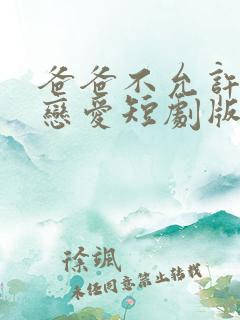 爸爸不允許
戀愛短劇版
徐颯
未經同意禁止轉載